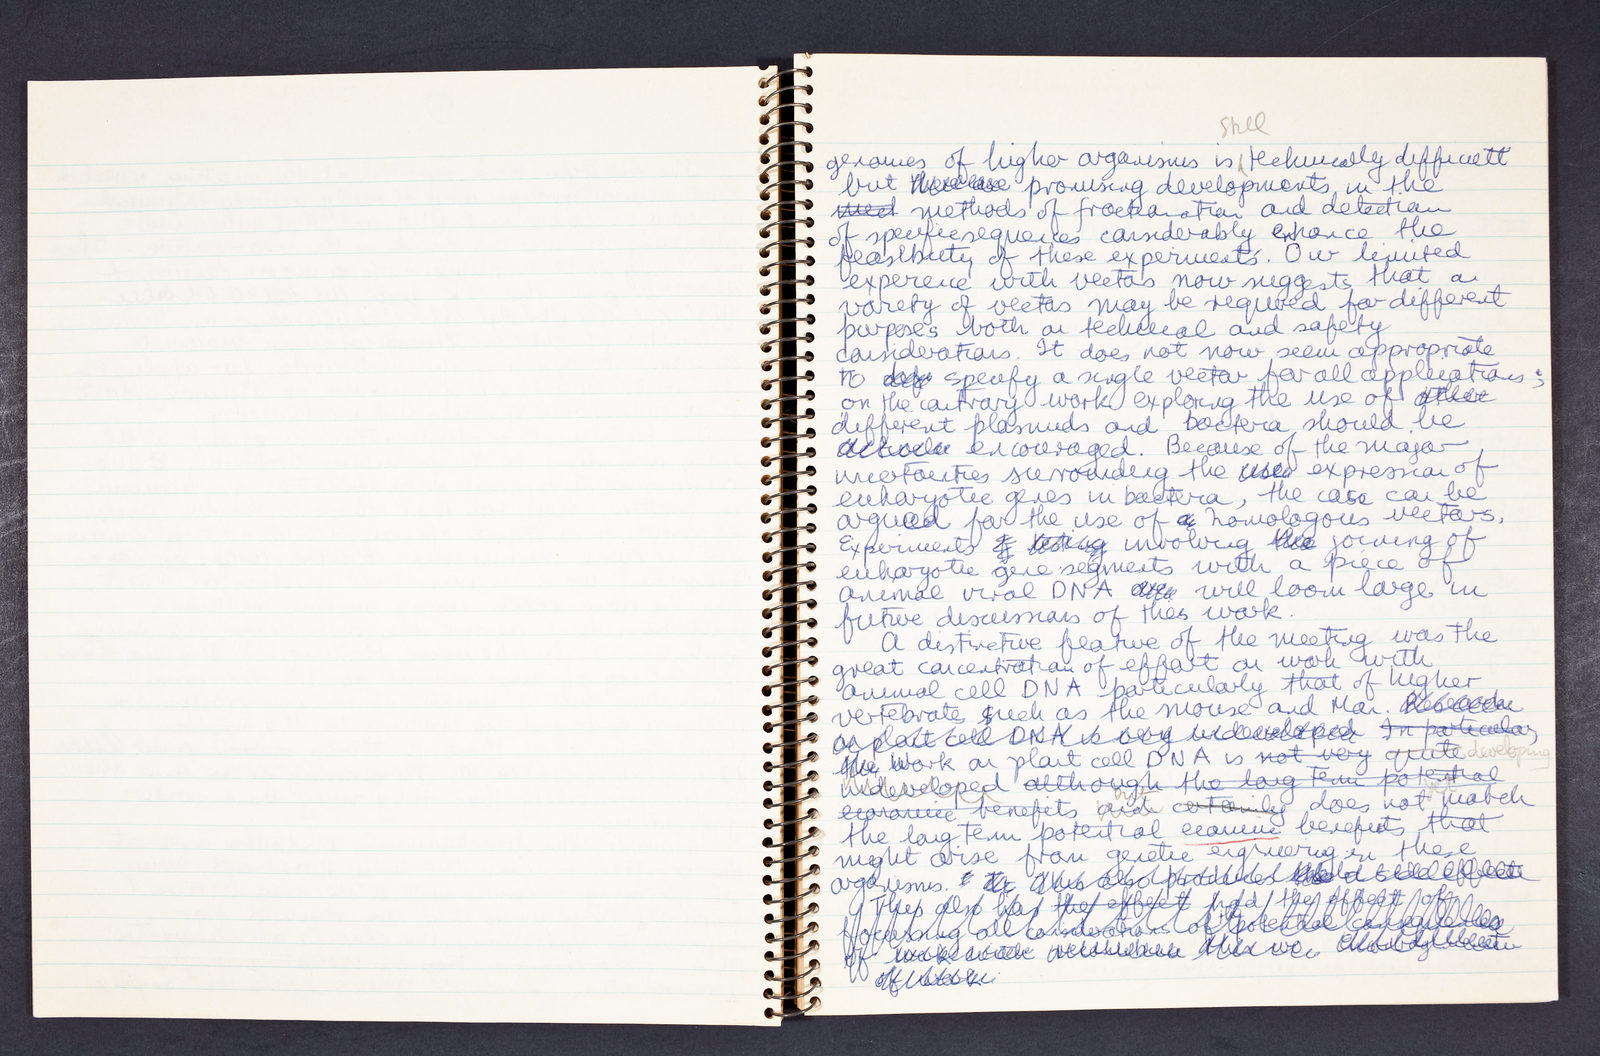 still
genomes of higher organisms is technically difficult
but there are promising developments in the
meet methods of fractionation and detection
of specific sequences considerably enhance the
feasibility of these experiments. Our limited
experience with vectors now suggests that a
variety of vectors may be required for different
purposes both on technical and safety
considerations. It does not now seem appropriate
to specify a single vector for all applications;
on the contrary work exploring the use of other
different plasmids and bacteria should be
encouraged. Because of the major
uncertainties surrounding the use expression of
eukaryotic genes in bacteria, the case can be
argued for the use of a homologous vectors.
Experiments of testing involving the joining of
eukaryotic gene segments with a piece of
animal viral DNA are will loom large in
future discussions of this work.
A distinctive feature of the meeting was the
great concentration of effort on work with
animal cell DNA particularly that of higher
vertebrates such as the mouse and Man. Research
on plant cell DNA is very undeveloped In particular,
the Work on plant cell DNA is not very quite developing
undeveloped although the long term potential
economic benefits and certainly does not match
the long term potential economic benefits that
might arise from genetic engineering in these
organisms. This also produces a side effect
They also has the effect had the effect of
focussing all considerations of potential consequences
of work with
of work.